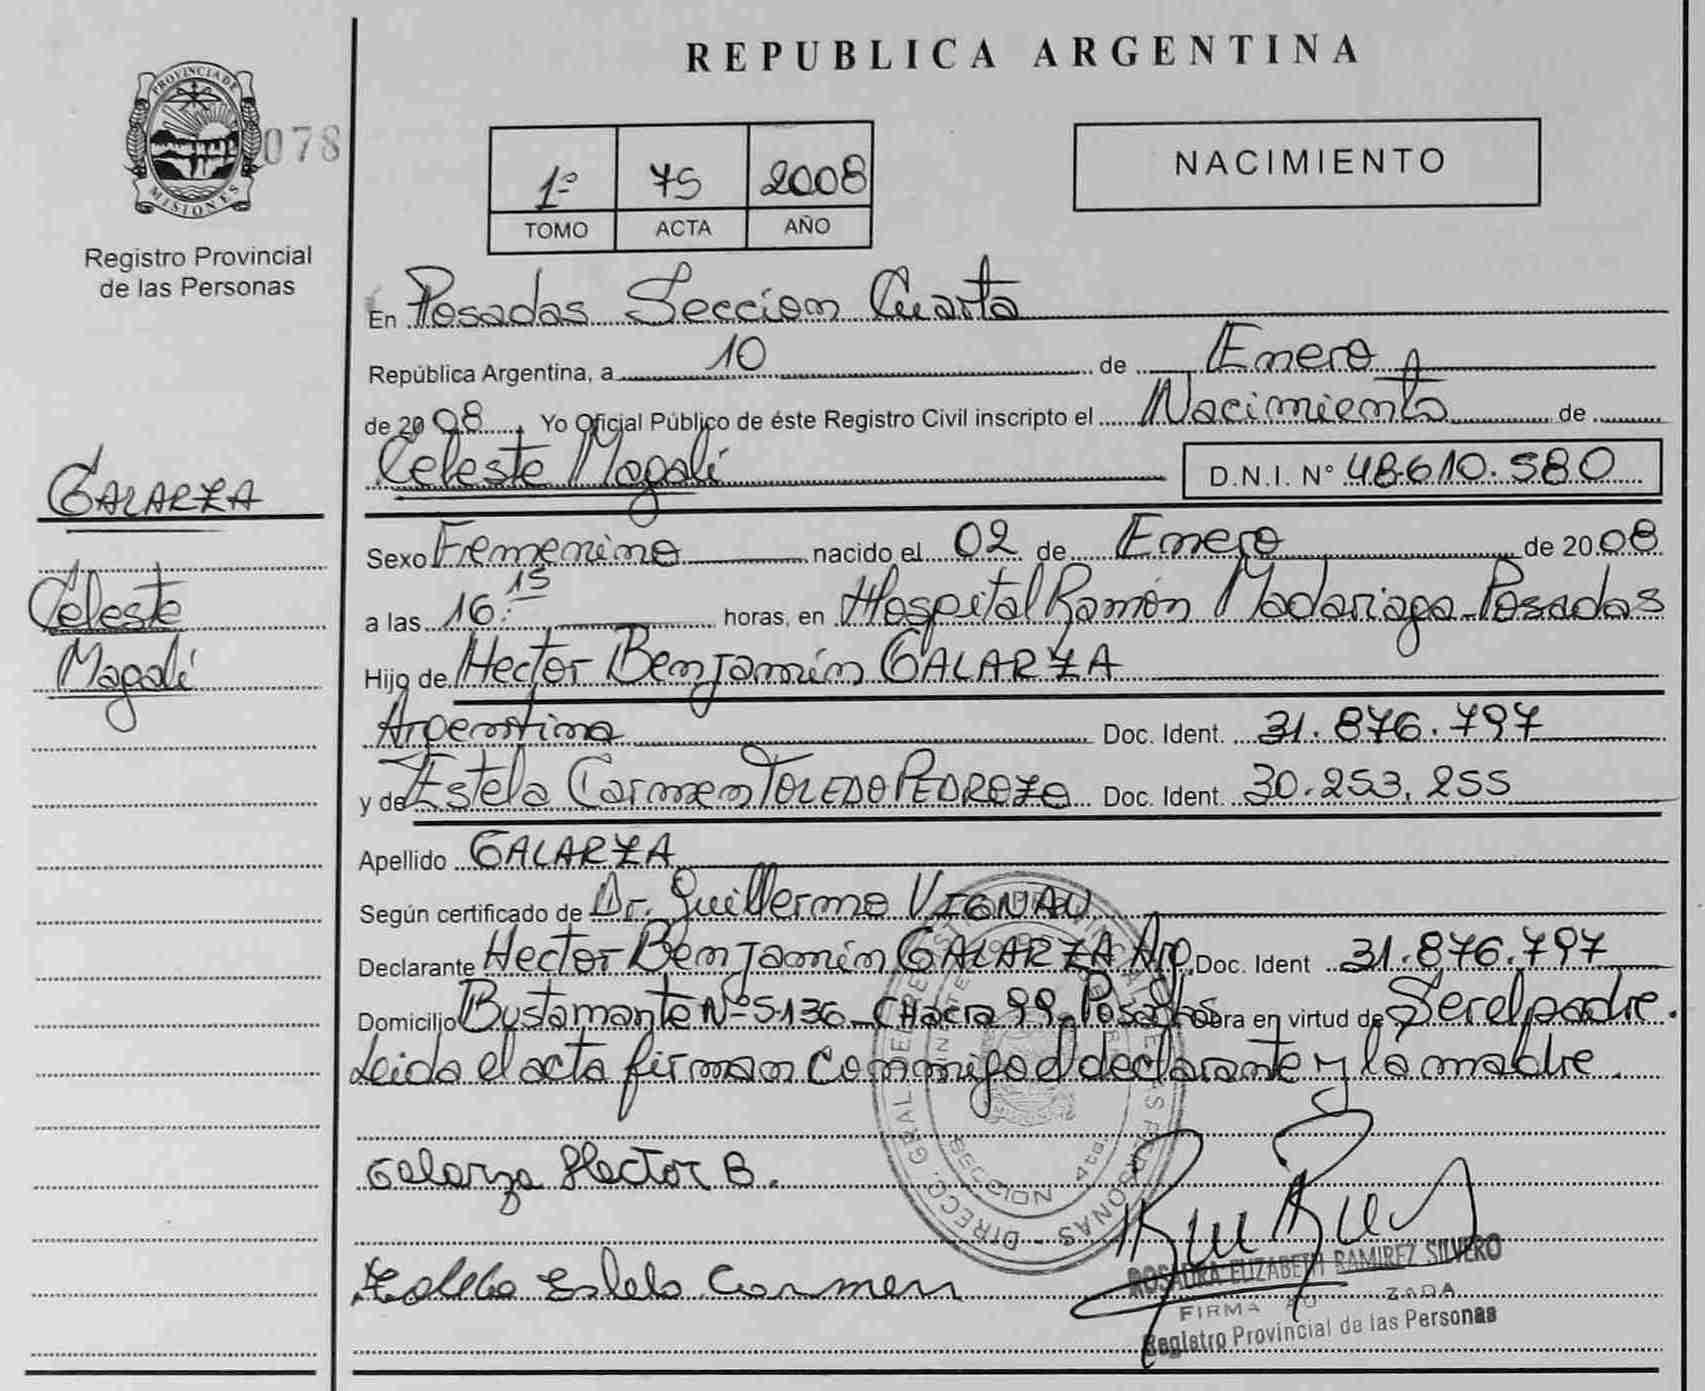 REPUBLICA ARGENTINA
PROVINCIA DE
MISIONES
078
Registro Provincial
de las Personas
1º 75 2008
TOMO ACTA AÑO
NACIMIENTO
En Posadas Seccion Cuarta
República Argentina, a 10 de Enero
de 2008 Yo Oficial Público de éste Registro Civil inscripto el Nacimiento de
Celeste Magalí D.N.I. Nº 48.610.580
GALARZA
Celeste
Magalí
Sexo Femenino nacido el 02 de Enero de 2008
a las 16:15 horas, en Hospital Ramón Madariaga-Posadas
Hijo de Hector Benjamín GALARZA
Argentina Doc. Ident. 31.876.797
y de Estela Carmen TOLEDO PEDROZO Doc. Ident. 30.253.255
Apellido GALARZA
Según certificado de Dr. Guillermo VIGNAU
Declarante Hector Benjamín GALARZA Arg. Doc. Ident 31.876.797
Domicilio Bustamante Nº 5136 - CHacra 99 - Posadas Obra en virtud de Ser el padre.
Leida el acta firman conmigo el declarante y la madre.
Galarza Hector B.
Toledo Estela Carmen
DIRECC. GRAL. PERSONAS
SECCION 4ta.
ROSANRA ELIZABETH RAMIREZ SILVERO
FIRMA AU ZADA
Registro Provincial de las Personas